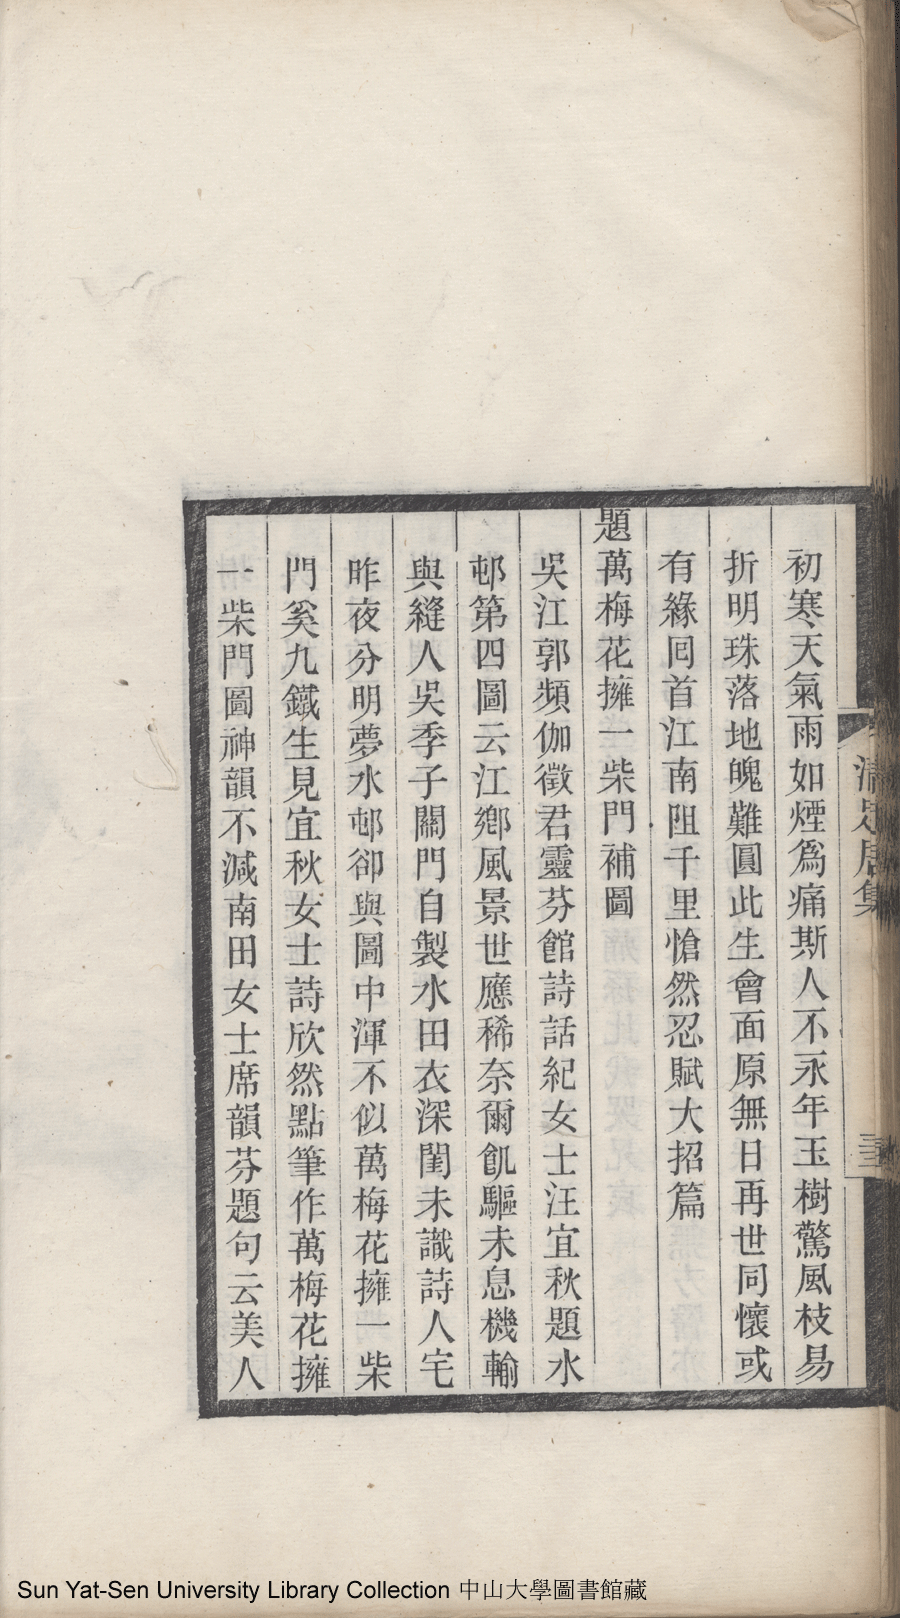 初寒天氣雨如煙爲痛斯人不永年玉樹驚風枝易
折明珠落地魄難圓此生會面原無日再世同懷或
有緣囘首江南阻千里愴然忍賦大招篇
題萬梅花擁一柴門補圖
吳江郭頻伽徵君靈芬館詩話紀女士汪宜秋題水
邨第四圖云江鄉風景世應稀奈爾飢驅未息機輸
與縫人吳季子關門自製水田衣深閨未識詩人宅
昨夜分明夢水邨卻與圖中渾不似萬梅花擁一柴
門奚九鐵生見宜秋女士詩欣然點筆作萬梅花擁
一柴門圖神韻不減南田女士席韻芬題句云美人
清足居集
Sun Yat-Sen University Library Collection 中山大學圖書館藏